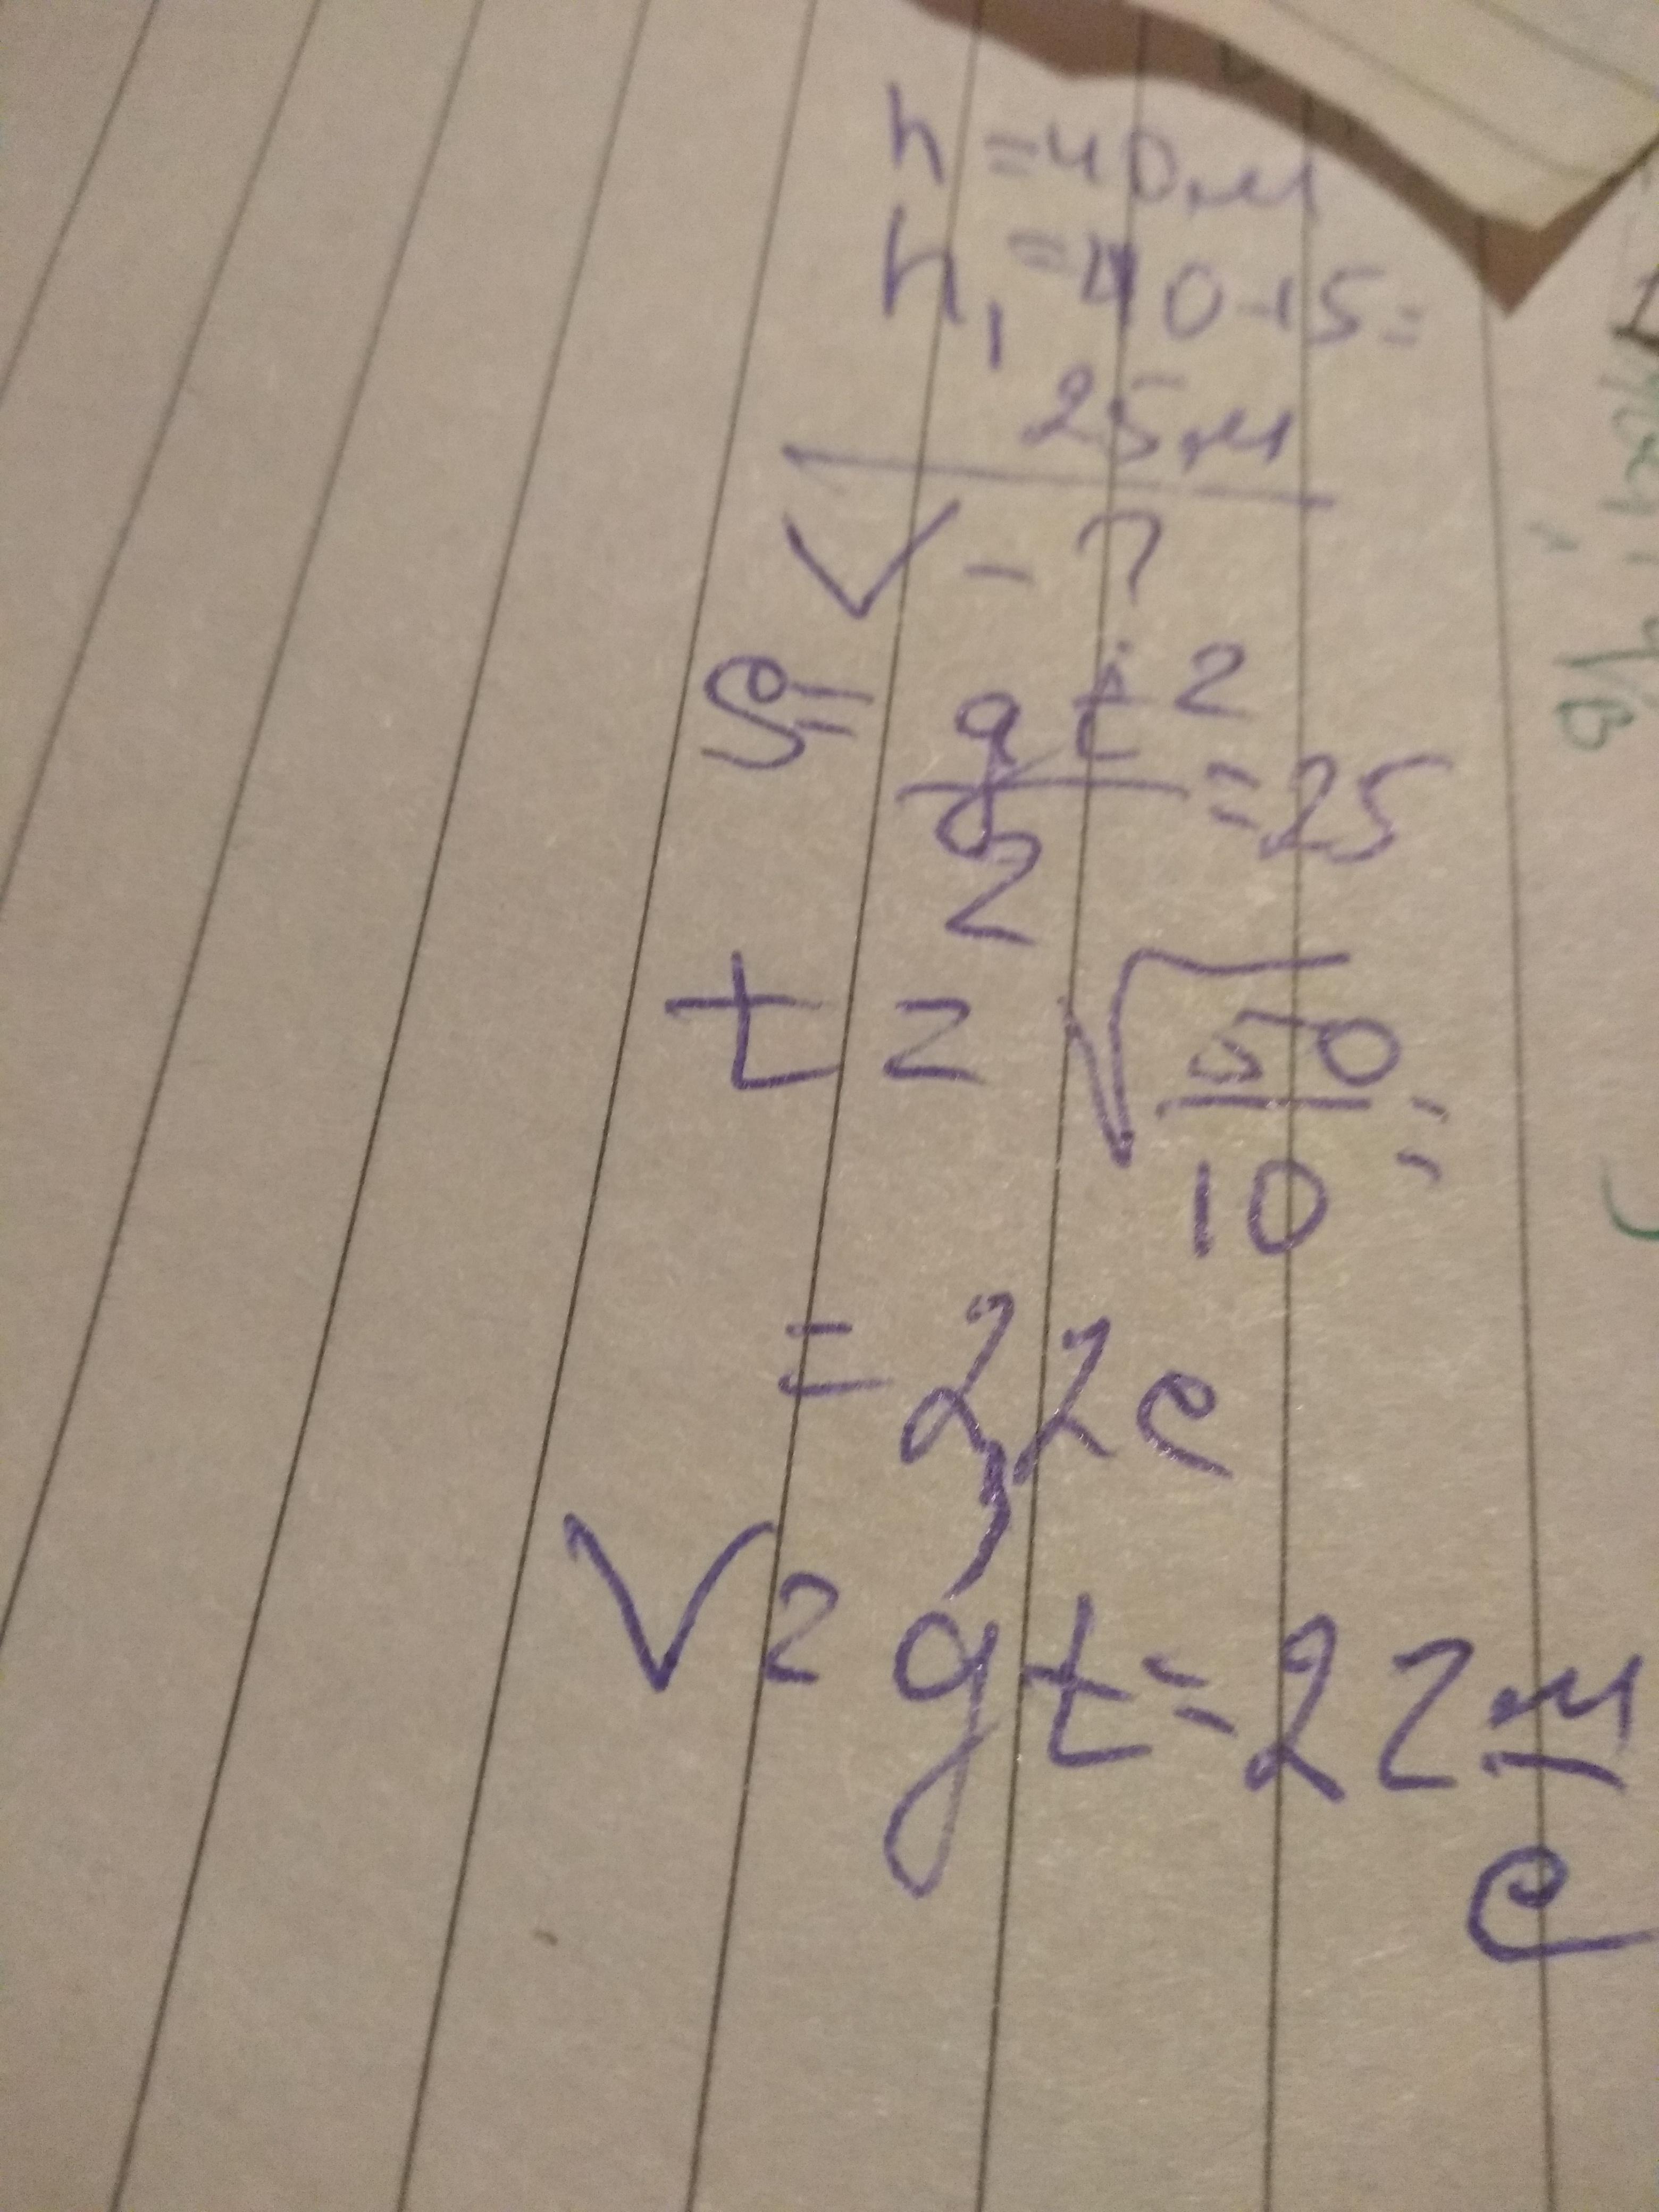 h = 40 м
h₁ = 40-15=
25 м
V - ?
S = gt²/2 = 25
t = √(50/10) =
= 2,2 с
V = gt = 22 м/с